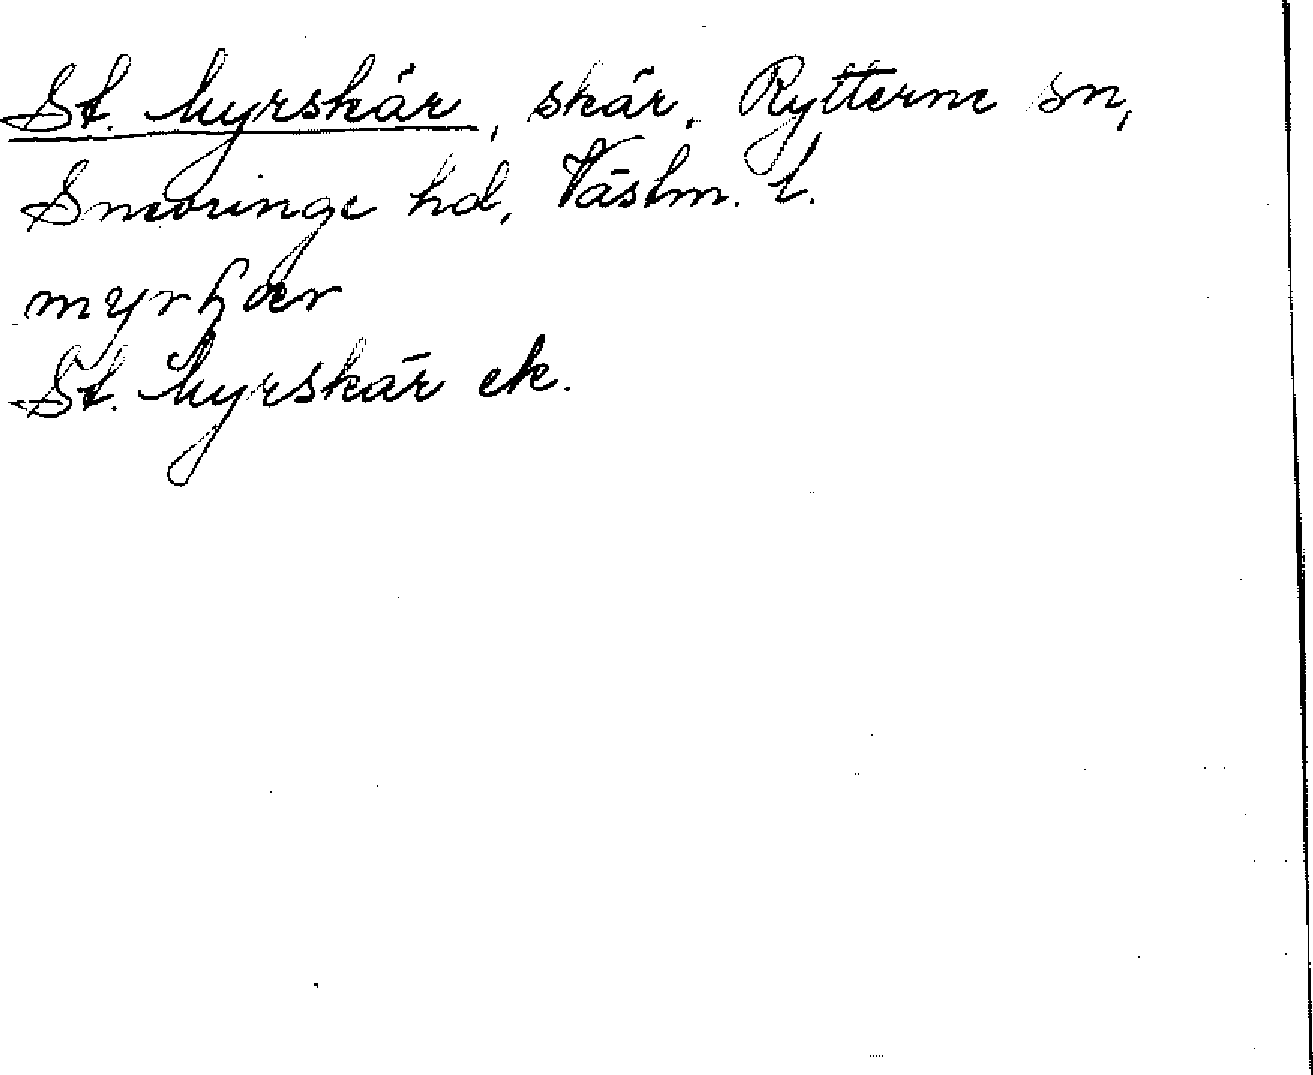 St. Myrskär, skär, Rytterne sn,
Snevringe hd, Västm. l.
myrʃær
St. Myrskär ek.